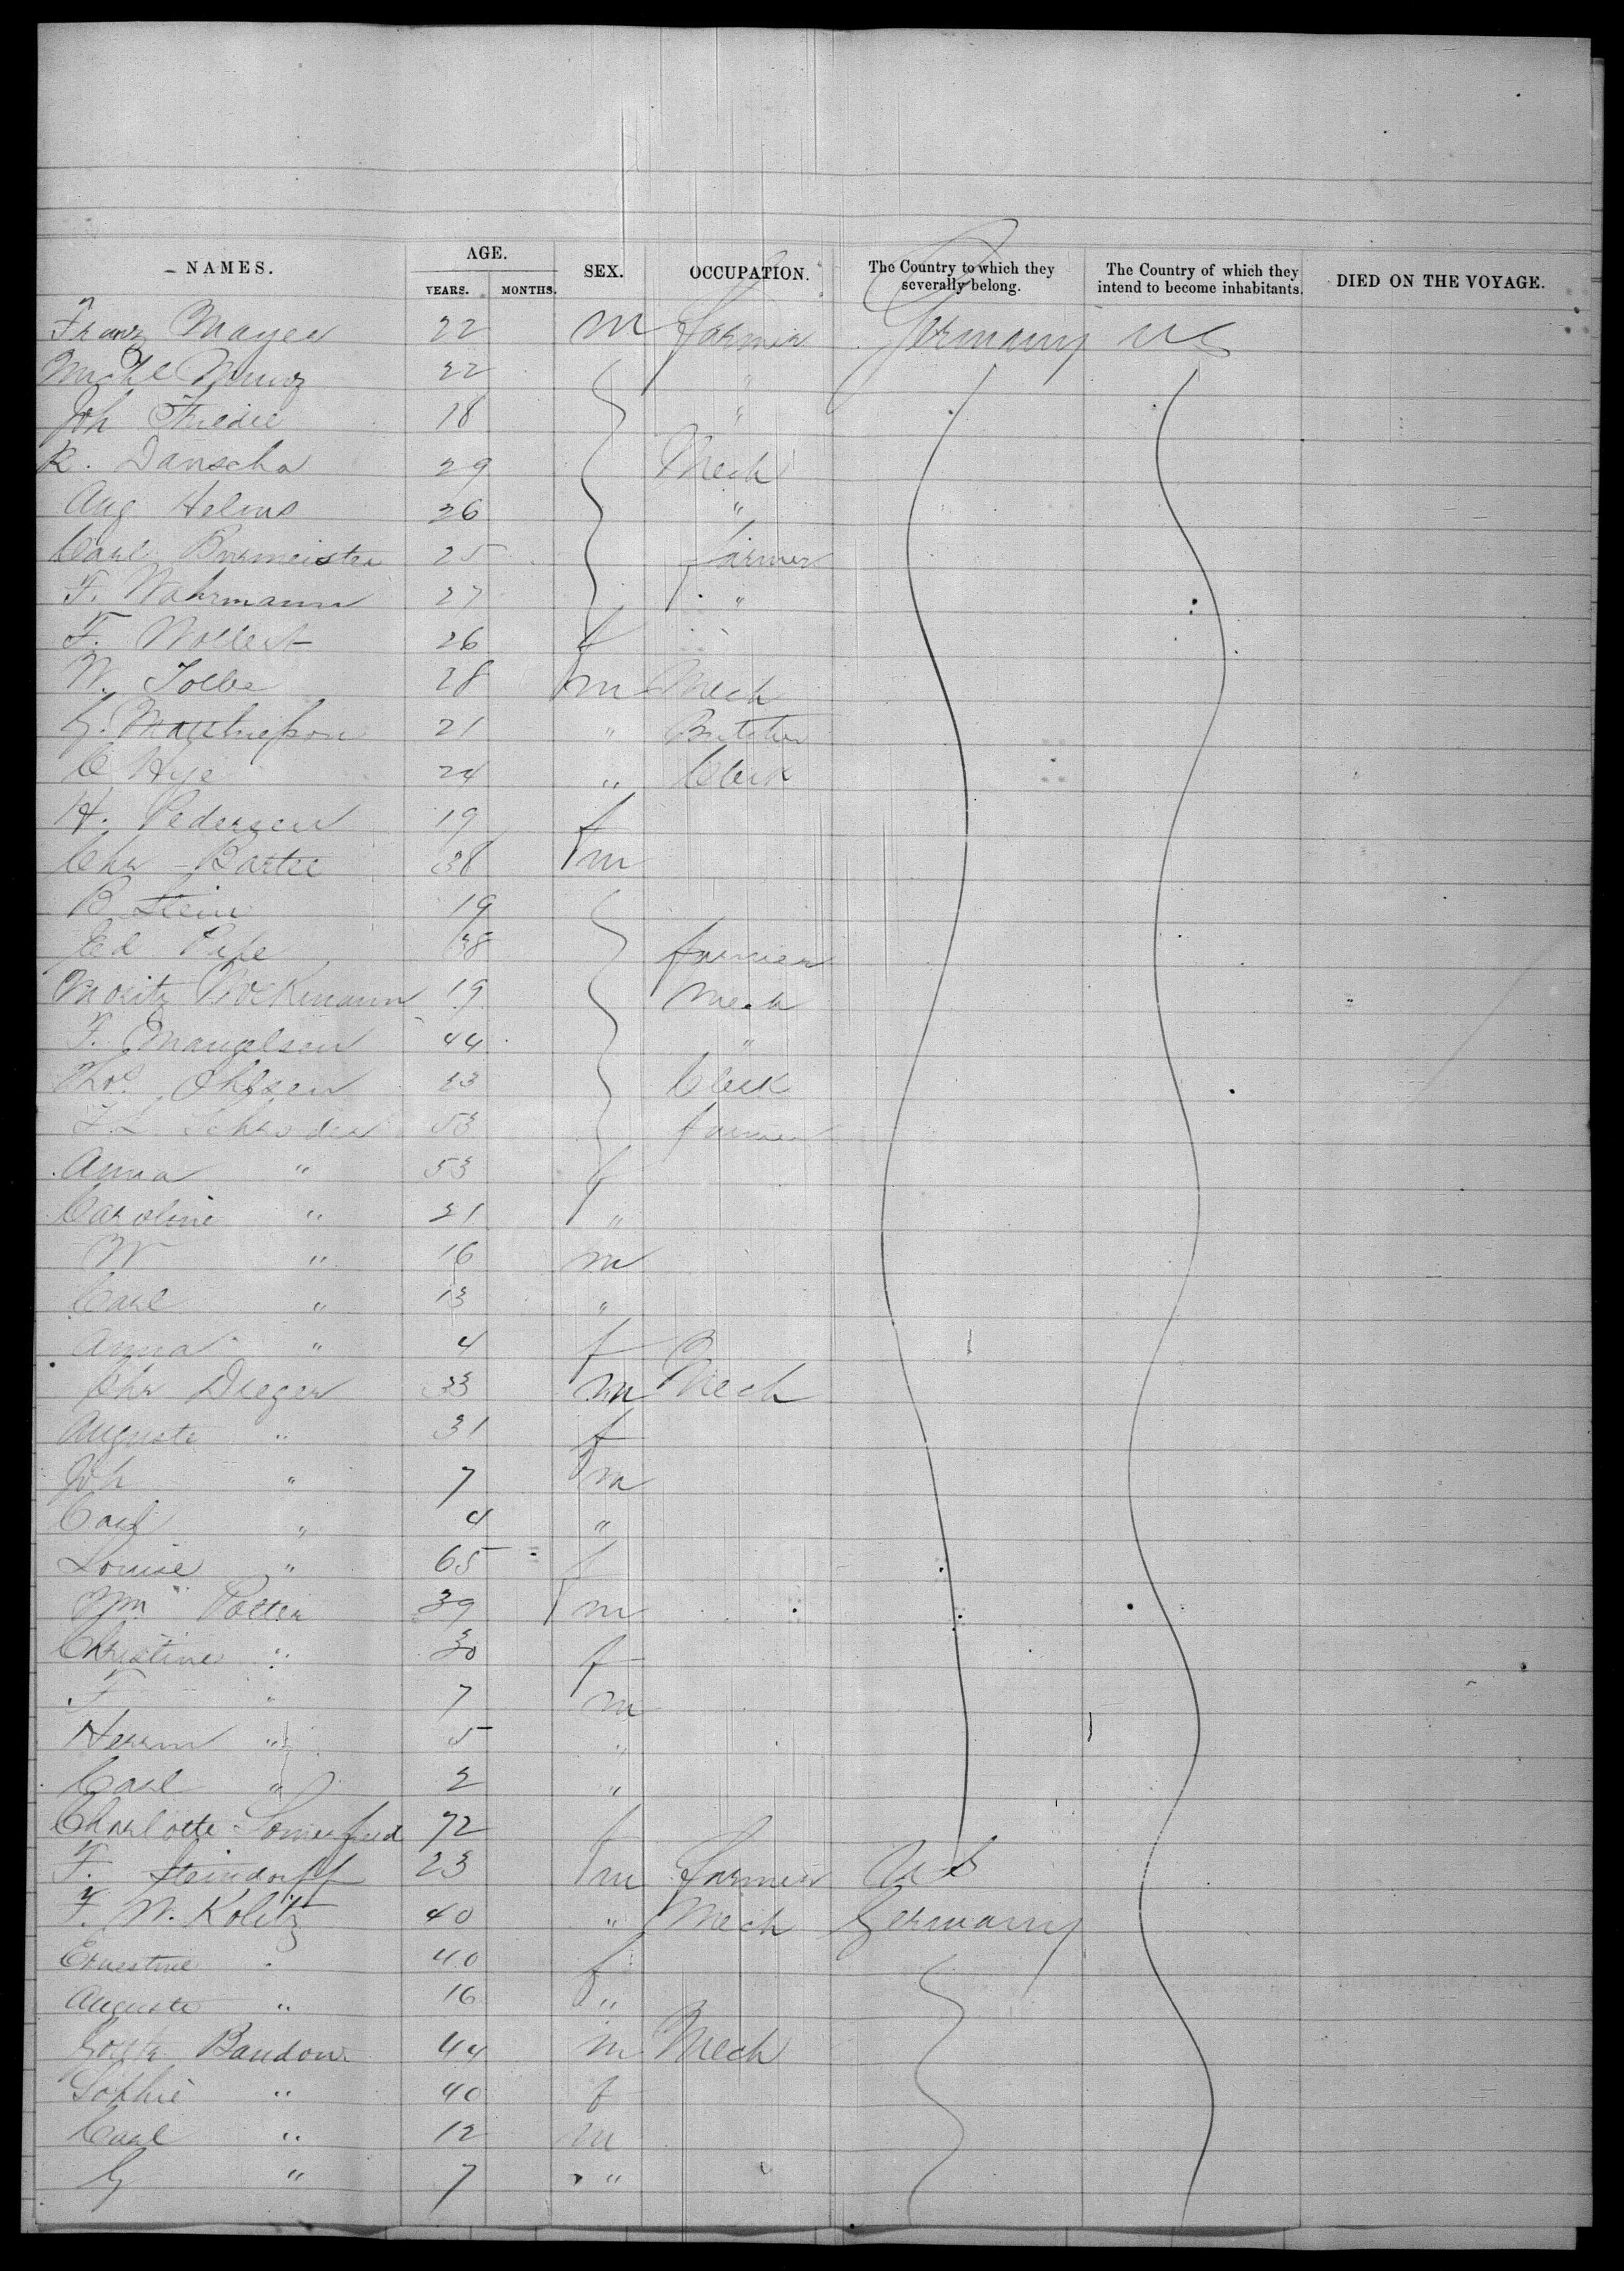 NAMES. AGE. SEX. OCCUPATION. The Country to which they severally belong. The Country of which they intend to become inhabitants. DIED ON THE VOYAGE.
YEARS. MONTHS.
Franz Mayer 22 m farmer Germany US
Michl 22 "
Joh 18 "
R. Danscha 29 Mech
Aug Helms 26 "
Carl Burmeister 25 farmer
F. Wahrmann 27 "
F. Wollert 26 f
W. Tolle 28 m Mech
G. 21 " Butcher
C Hye 24 " Clerk
H. Pedersen 19 f
Chr Bartee 38 m
B Stein 19
Ed Pape 38 farmer
Moritz Brockmann 19 Mech
F. Mangelsen 44 "
Thos. Ohlsen 23 Clerk
F. L. Schroder 53 farmer
Anna " 53 f
Caroline " 21 "
W " 16 m
Carl " 13 "
Anna " 4 f
Chr Dreger 33 m Mech
Auguste " 31 f
Joh " 7 m
Carl " 4 "
Louise " 65 f
Wm Potter 39 m
Christine " 30 f
F " 7 m
Herrm " 5 "
Carl " 2 "
Charlotte 72 f
F. Steindorff 23 m farmer US
F. W. Kolitz 40 " Mech Germany
Ernestine " 40 f
Auguste " 16 "
Bandow 44 m Mech
Sophie " 40 f
Carl " 12 m
G " 7 "